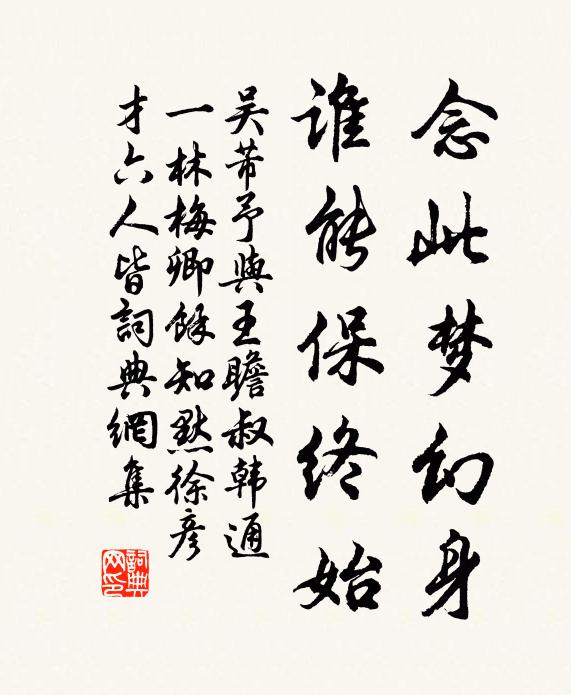 念此梦幻身
谁能保终始
吴芾予與王瞻叔韩通
一林梅卿餘知默徐彦
才六人皆詞典網集
詞典網印